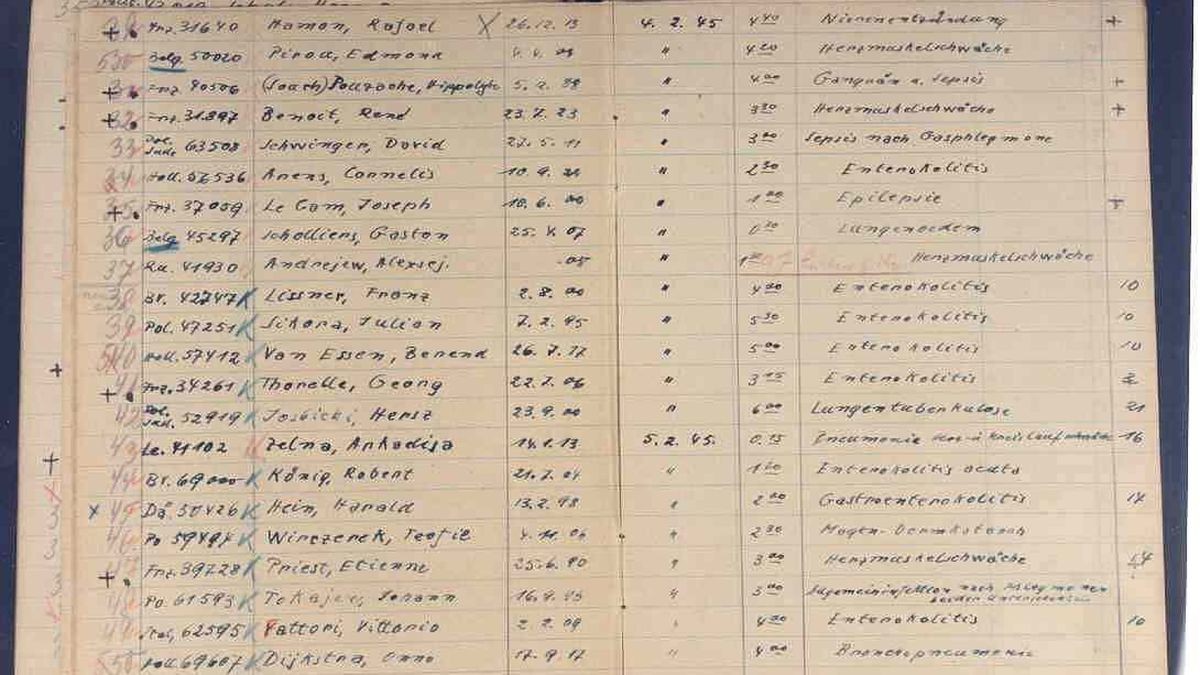 Frz. 31640 Hamon, Rafael X 26.12.13 4. 2. 45 4 40 Nierenentzündung +
530 Belg. 50020 Pirou, Edmond 4. 4. " 4 20 Herzmuskelschwäche
+ Frz. 40506 (Joach) Hippolyte 5. 2. " 4 00 Gangrän u. Sepsis +
+ 32. Frz. 31897 Benoit, René 23. 7. 23 " 3 30 Herzmuskelschwäche +
33 Pol. Jude 63508 Schwinger, David 27. 5. 11 " 3 00 Sepsis nach Gasphlegmone
34 Holl. 57536 Arens, Cornelis 10. 9. " 2 30 Enterokolitis
+ 35. Frz. 37059 Le Gam, Joseph 10. 6. 00 " 1 00 Epilepsie +
36 Belg 45297 Scholliers, Gaston 25. 4. 07 " 0 30 Lungenoedem
37 Ru. 41930 Andrejew, Alexsej. .05 Herzmuskelschwäche
38 Br. 42747 K Lissner, Franz 2. 8. 00 " 4 00 Enterokolitis 10
39 Pol. 47251 K Sikora, Julian 7. 2. 95 " 5 30 Enterokolitis 10
540 Holl. 57412 K Van Essen, Berend 26. 7. 17 " 5 00 Enterokolitis 10
+ 41. Frz. 34261 K Thorelle, Georg 22. 7. 06 " 3 15 Enterokolitis
42 Pol. Jud. 52919 K Josbicki, Hersz 23. 9. 00 " 6 00 Lungentuberkulose 21
43 Le. 41102 K Zelna, Arkadija 14. 1. 13 5. 2. 45. 0.15 Pneumonie Kreislauf 16
44 Br. 69000 K König, Robert 21. 7. 04 " 1 00 Enterokolitis acuta
x 45 Dä. 50426 K Hein, Harald 13. 2. 98 " 2 00 Gastroenterokolitis 14
46. Po 59497 K Wirczerek, Teofil 4. 11. 06 " 2 30 Magen-Darmkatarrh
+ 47. Frz. 39728 K Priest, Etienne 25. 6. 90 " 3 00 Herzmuskelschwäche 54
48 Po. 61593 K Tokajer, Johann 16. 4. 95 " 3 00 Allgemeininfektion nach Phlegmonen beider Unterschenkel
49 Ital. 62595 K Fattori, Vittorio 2. 2. 09 " 4 00 Enterokolitis 10
550 Holl 69607 K Dijkstra, Onno 17. 9. 17 " 4 00 Bronchopneumonie